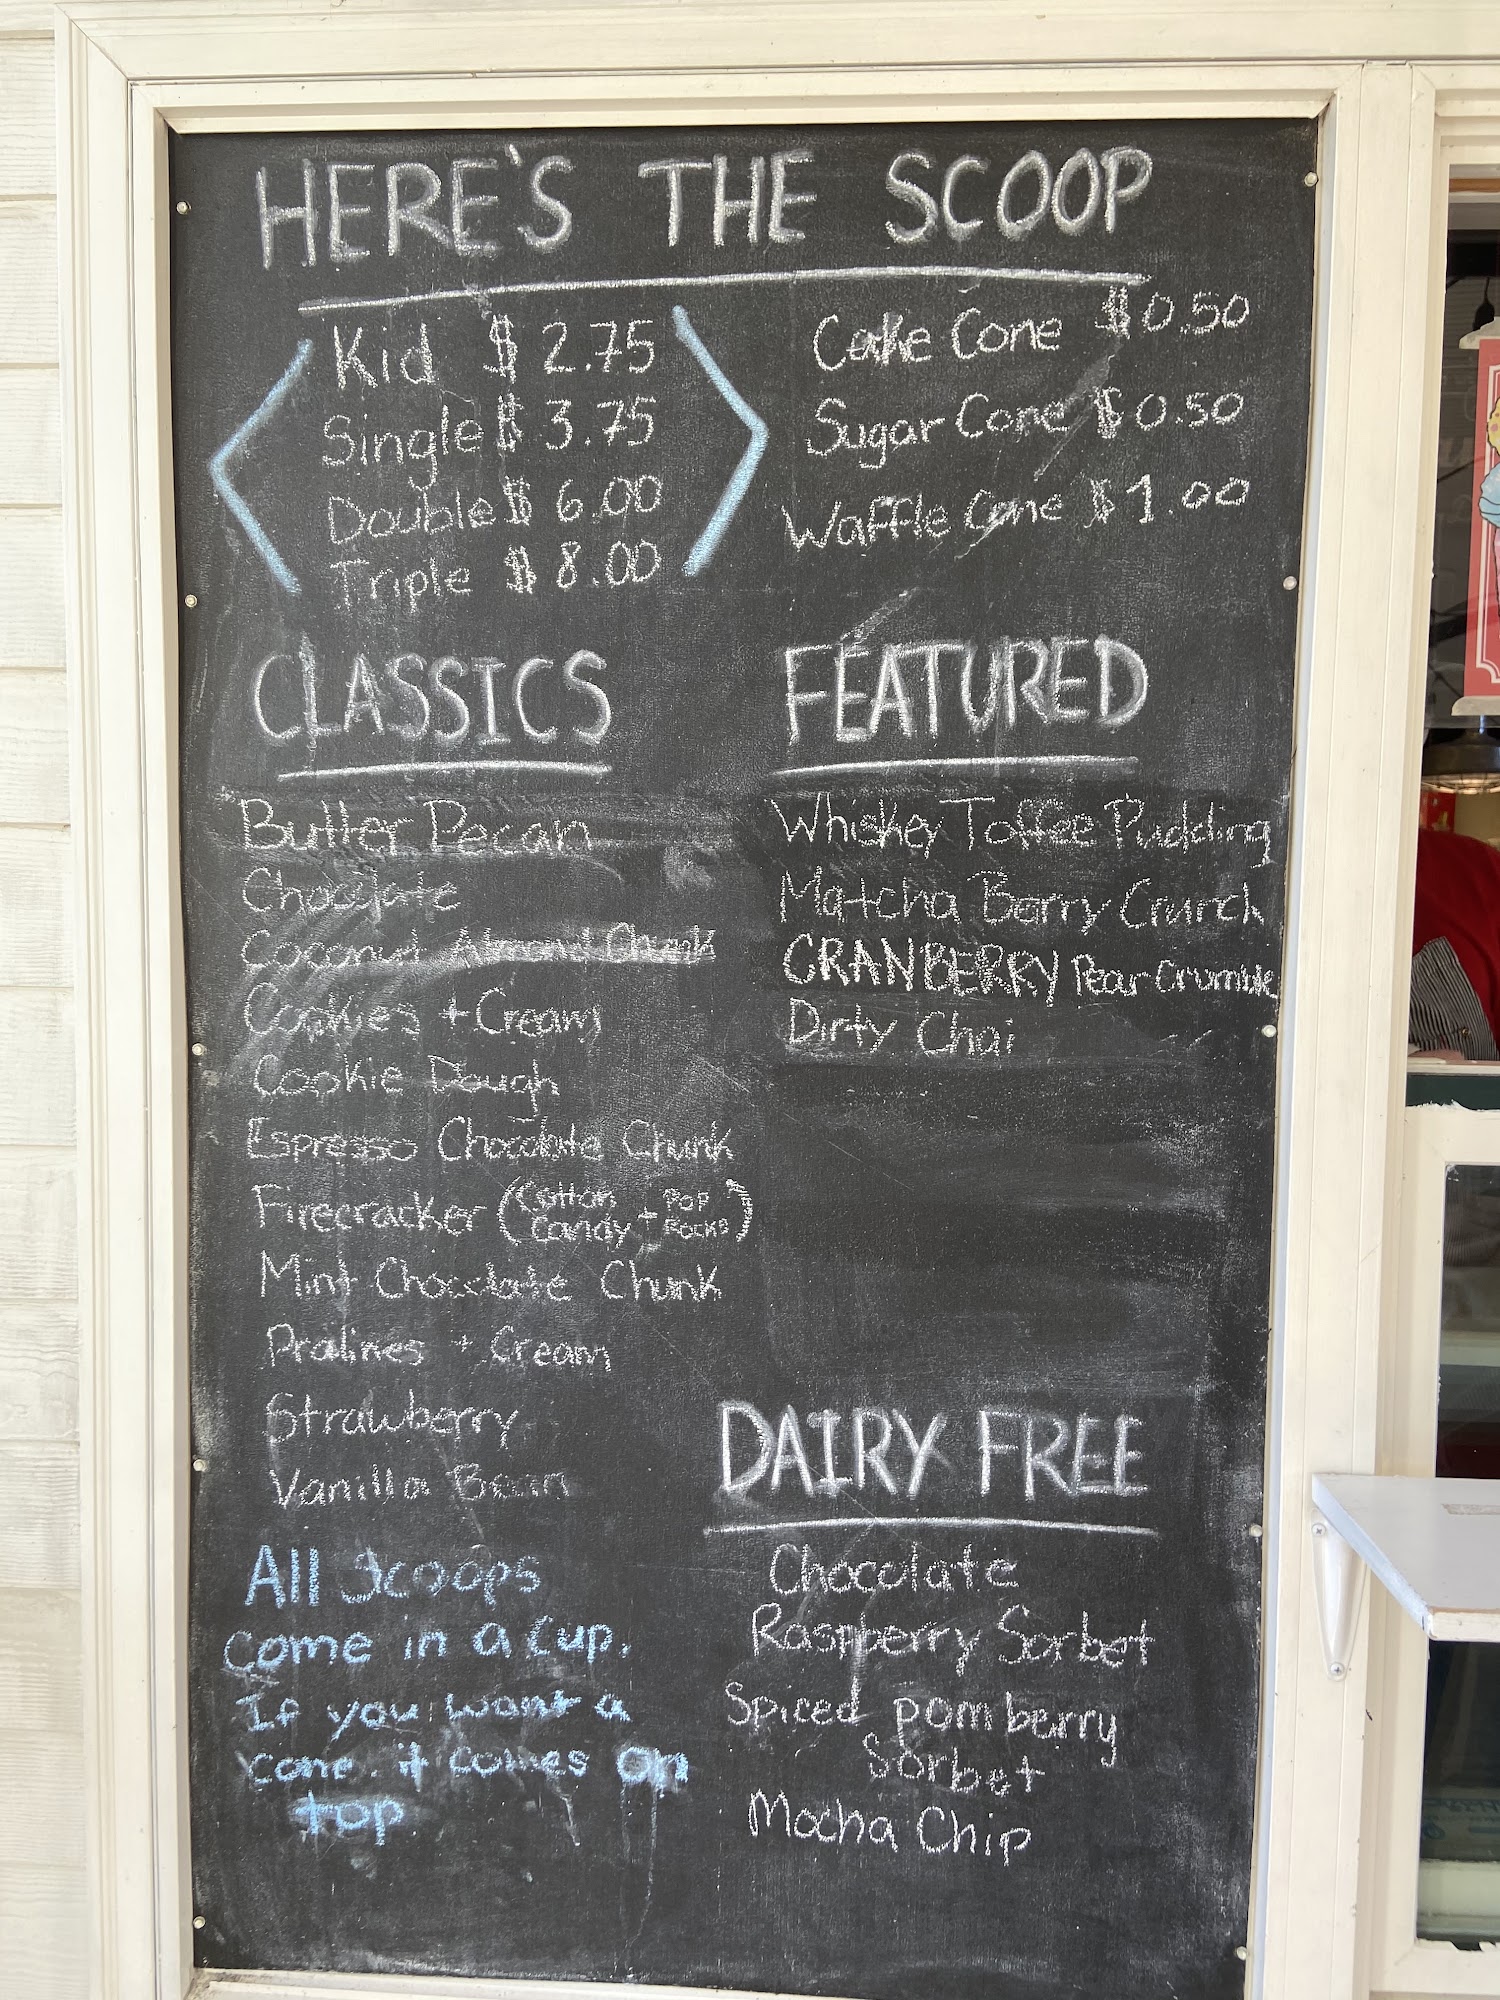 HERE'S THE SCOOP
Kid $ 2.75
Single $ 3.75
Double $ 6.00
Triple $ 8.00
Cake Cone $0.50
Sugar Cone $0.50
Waffle Cone $1.00
CLASSICS
Butter Pecan
Chocolate
Coconut Almond Chunk
Cookies + Cream
Cookie Dough
Espresso Chocolate Chunk
Firecracker (Cotton Candy + POP ROCKS)
Mint Chocolate Chunk
Pralines + Cream
Strawberry
Vanilla Bean
All Scoops
come in a cup.
If you want a
cone. it comes on
top
FEATURED
Whiskey Toffee Pudding
Matcha Berry Crunch
CRANBERRY Pear Crumble
Dirty Chai
DAIRY FREE
Chocolate
Raspberry Sorbet
Spiced pomberry
Sorbet
Mocha Chip